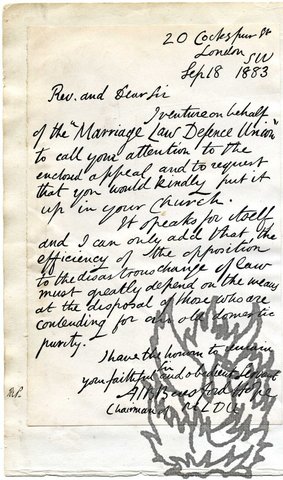 20 Cockspur St
London
SW
Sep 18 1883
Rev. and Dear Sir
I venture on behalf
of the "Marriage Law Defence Union"
to call your attention to the
enclosed appeal and to request
that you would kindly put it
up in your Church.
It speaks for itself
and I can only add that the
efficiency of the opposition
to the disastrous change of law
must greatly depend on the means
at the disposal of those who are
contending for our old domestic
purity.
I have the honour to remain
your faithful and obedient servant
A J B Beresford Hope
Chairman of MLDU